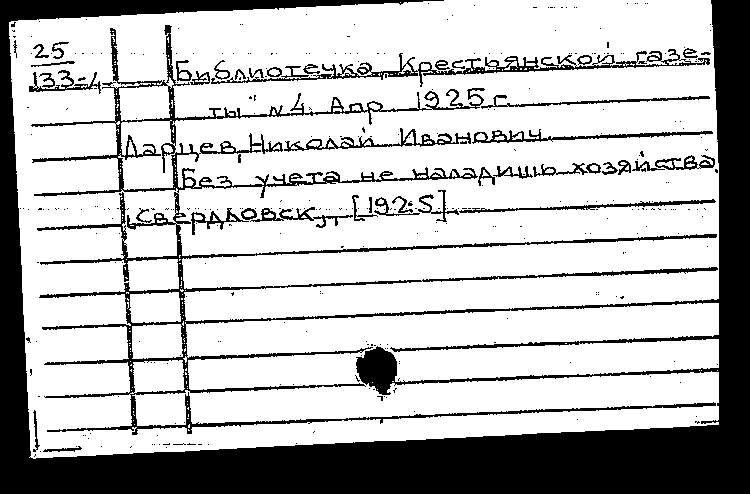 25
133-4
Библиотечка „Крестьянской газе-
ты" № 4. Апр 1925 г.
Ларцев, Николай Иванович.
Без учета не наладишь хозяйства.
[Свердловск], [1925].